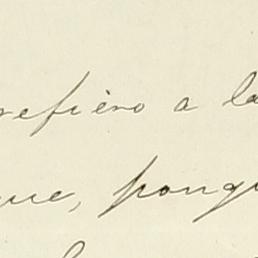 refiéro a la
que, porqu